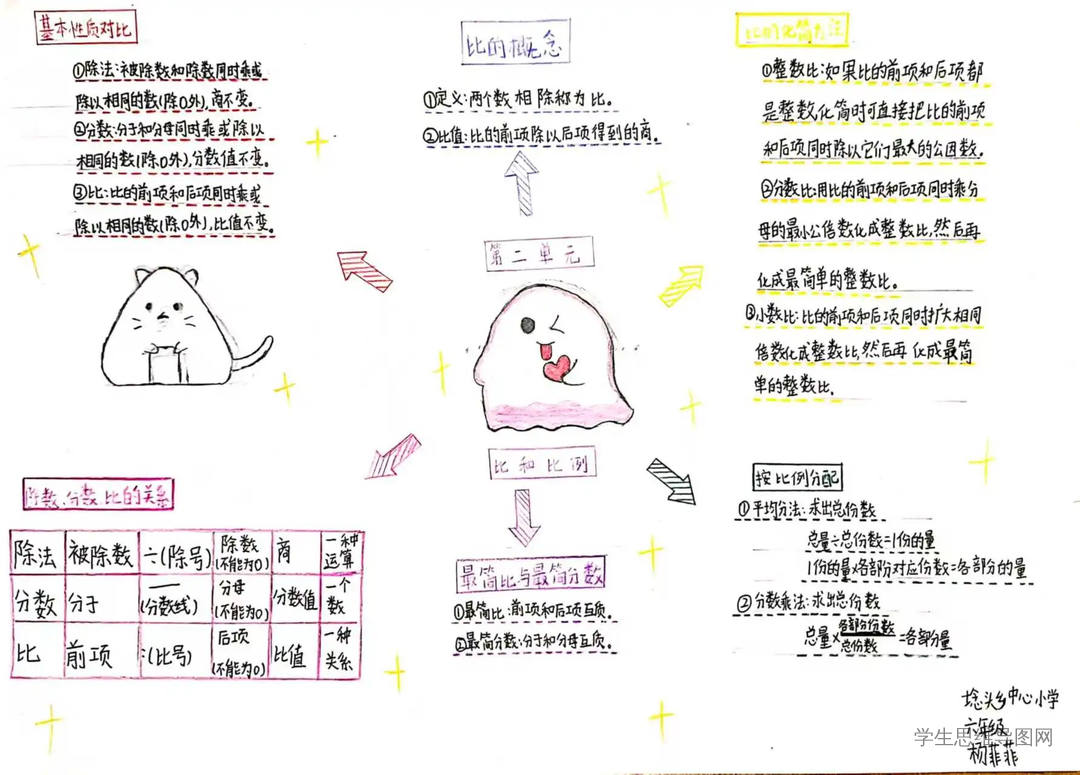 基本性质对比
①除法:被除数和除数同时乘或
除以相同的数(除0外),商不变。
②分数:分子和分母同时乘或除以
相同的数(除0外),分数值不变。
③比:比的前项和后项同时乘或
除以相同的数(除0外),比值不变。
比的概念
①定义:两个数相除称为比。
②比值:比的前项除以后项得到的商。
比的化简方法
①整数比:如果比的前项和后项都
是整数,化简时可直接把比的前项
和后项同时除以它们最大的公因数。
②分数比:用比的前项和后项同时乘分
母的最小公倍数化成整数比,然后再
化成最简单的整数比。
③小数比:比的前项和后项同时扩大相同
倍数化成整数比,然后再化成最简
单的整数比。
第二单元
比和比例
除数、分数、比的关系
除法 被除数 ÷(除号) 除数(不能为0) 商 一种运算
分数 分子 —(分数线) 分母(不能为0) 分数值 一个数
比 前项 :(比号) 后项(不能为0) 比值 一种关系
最简比与最简分数
①最简比:前项和后项互质。
②最简分数:分子和分母互质。
按比例分配
①平均分法:求出总份数
总量÷总份数=1份的量
1份的量×各部分对应份数=各部分的量
②分数乘法:求出总份数
总量×各部分份数/总份数=各部分量
埝头乡中心小学
六年级
杨菲菲
学生思维导图网